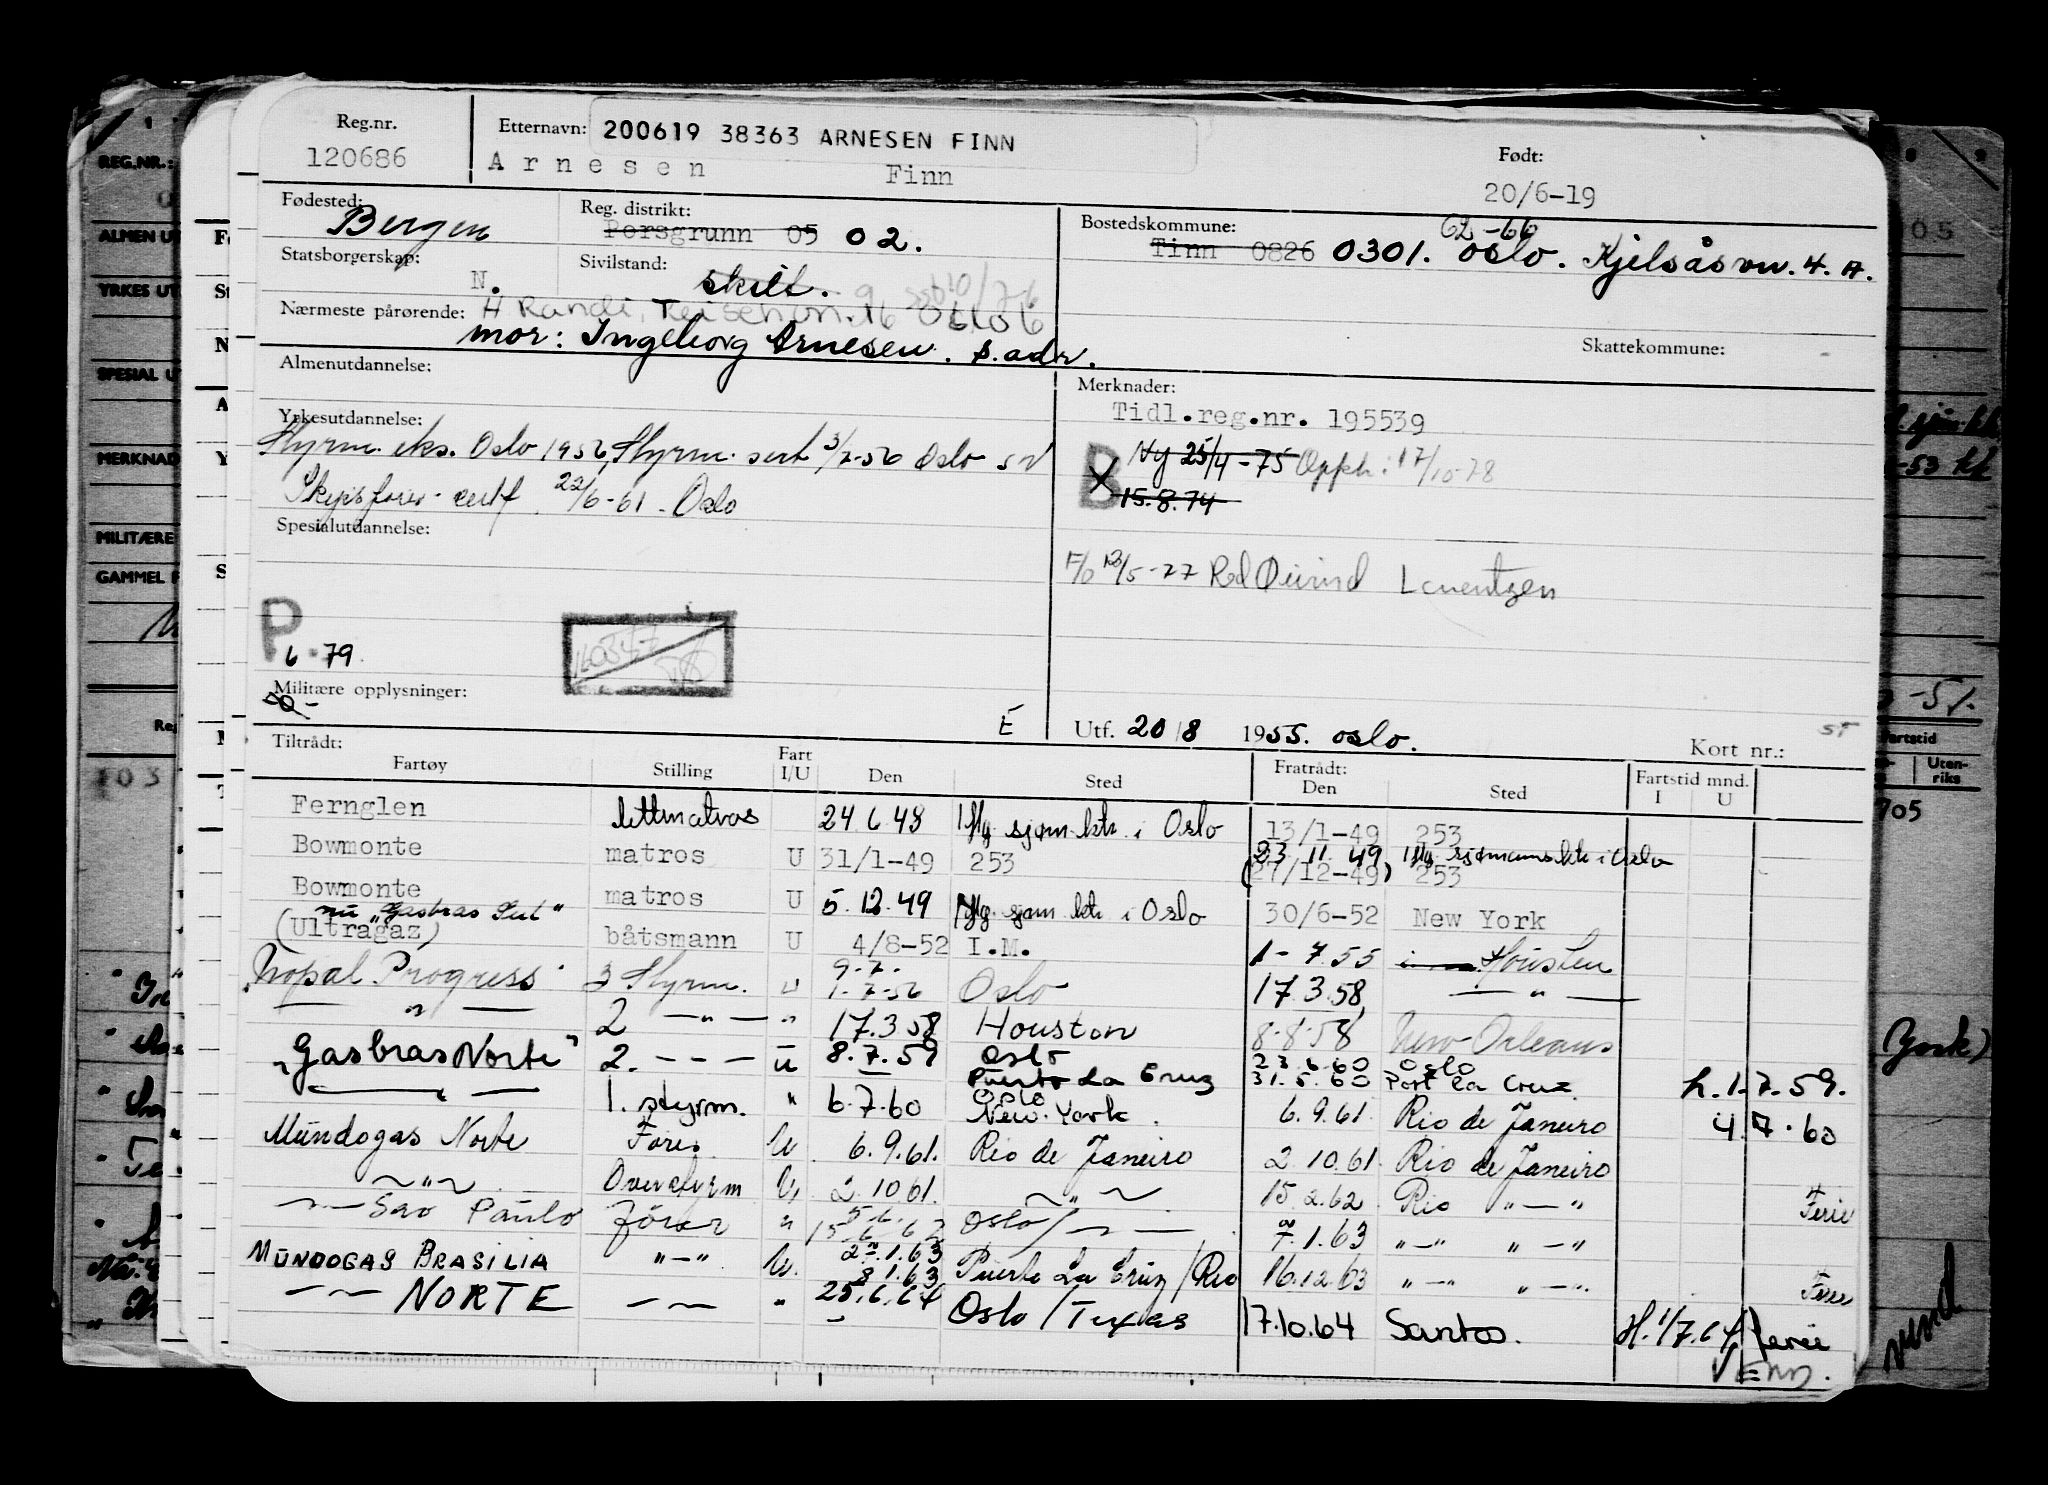 Reg.nr.
120686
Etternavn: 200619 38363 ARNESEN FINN
Arnesen Finn
Født:
20/6-19
Fødested: Bergen
Reg. distrikt:
Porsgrunn 05 02.
Bostedskommune: 62-66
Tinn 0826 0301. Oslo. Kjelsåsvn. 4. A.
Statsborgerskap: N.
Sivilstand: skilt.
Nærmeste pårørende: H Randi,
mor: Ingeborg Arnesen. s. adr.
Skattekommune:
Almenutdannelse:
Merknader:
Tidl.reg.nr. 195539
Yrkesutdannelse:
Styrm. eks. Oslo 1956, Styrm. sert 3/7-56 Oslo
Skipsfører-sertf. 22/6-61. Oslo
B Ny 25/4-75 Opph: 17/10-78
X 15.8.74
Spesialutdannelse:
F/O 13/5-77 Red Øivind Lorentzen
P
6-79
Militære opplysninger:
E
Utf. 20/8 1955. Oslo.
Kort nr.:
Tiltrådt:
Fartøy Stilling Fart I/U Den Sted Fratrådt: Den Sted Fartstid mnd. I U
Fernglen lettmatros 24.6.48 Mg. sjøm.ktr. i Oslo 13/1-49 253
Bowmonte matros U 31/1-49 253 23.11.49 Mg. sjømannsktr. i Oslo
(27/12-49) 253
Bowmonte matros U 5.12.49 Mg. sjøm.ktr. i Oslo 30/6-52 New York
nu "Gasbras Sul"
(Ultragaz) båtsmann U 4/8-52 I.M. 1-7.55 Houston
Nopal Progress 3 Styrm. U 9.7.
1-7-56 Oslo 17.3.58 — " —
— " — 2 — " — " 17.3.58 Houston 8.8.58 New Orleans
"Gasbras Norte" 2. — — — U 8.7.59 Oslo
Puerto La Cruz 23.6.60 Oslo
31.5.60 Port La Cruz h.1.7.59.
— " — 1. styrm. " 6.7.60 Oslo
New-York. 6.9.61. Rio de Janeiro 4.7.60
Mundogas Norte Fører U 6.9.61. Rio de Janeiro 2.10.61. Rio de Janeiro
— " — Overstyrm U 2.10.61. — " — 15.2.62 Rio " — " Ferie
— — Sao Paulo fører " 5.6.
15/6/62 Oslo/ — " — 7.1.63 " — " " — "
MUNDOGAS BRASILIA " — " U. 2.1.63
8.1.63 Puerto La Cruz/Rio 16.12.63 " — " " — " Ferie
— — NORTE — — " 25.6.64 Oslo/Texas 17.10.64 Santos. H.1/7.64 ferie
VEND.
REG.NR.:
ALMEN UT
YRKES UT
SPESIAL U
MERKNAD
MILITÆRE
GAMMEL F
Fartstid
Uten-
riks
705
York)
vend